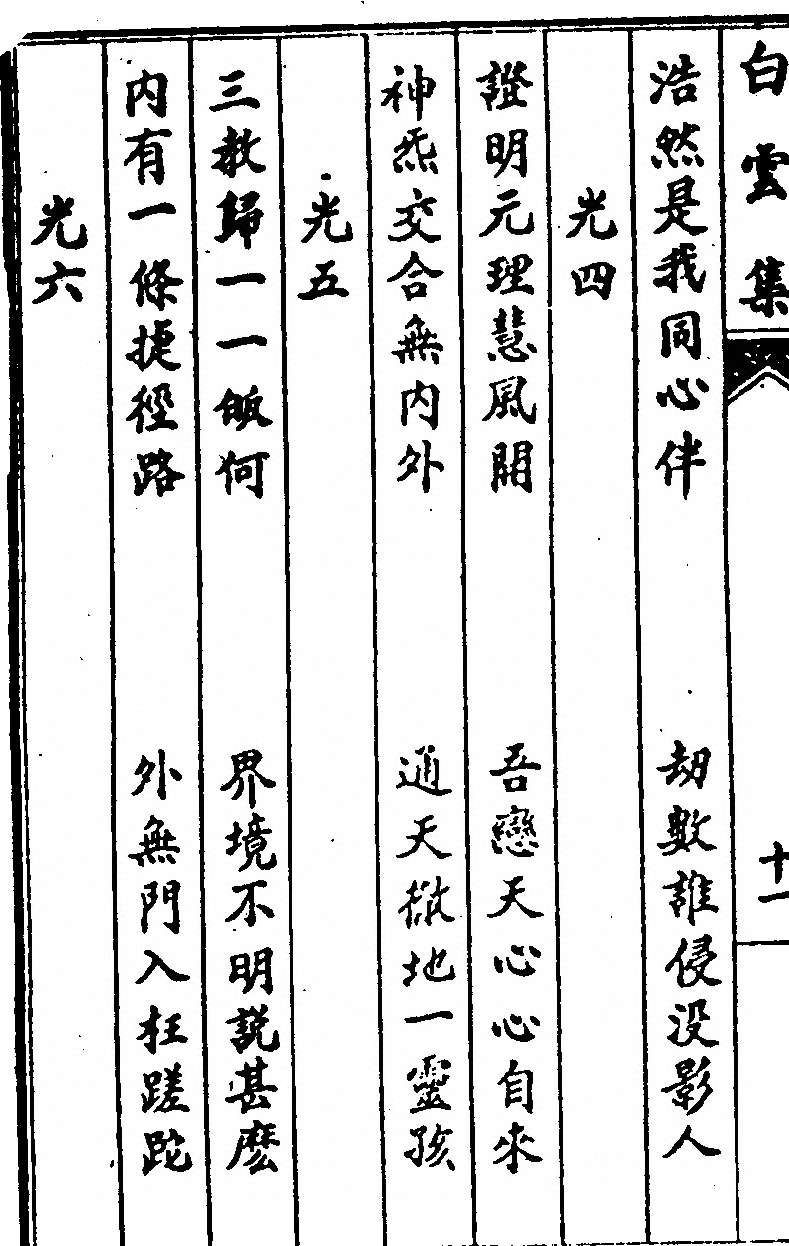 白雲集
十一
浩然是我同心伴　劫數誰侵没影人
光四
證明元理慧風開　吾戀天心心自來
神炁交合無内外　通天徹地一靈孩
光五
三教歸一一皈何　界境不明説甚麽
内有一條捷徑路　外無門入枉蹉跎
光六